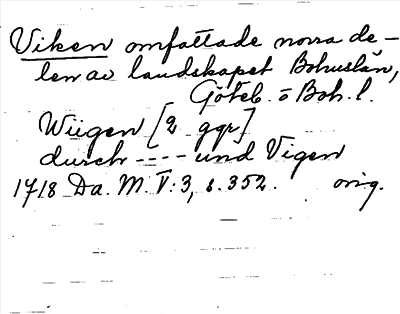 Viken omfattade norra de-
len av landskapet Bohuslän,
Göteb. o Boh. l.
Wügen [2 ggr]
durch ---- und Vigen
1718 Da. M. V:3, s. 352. orig.